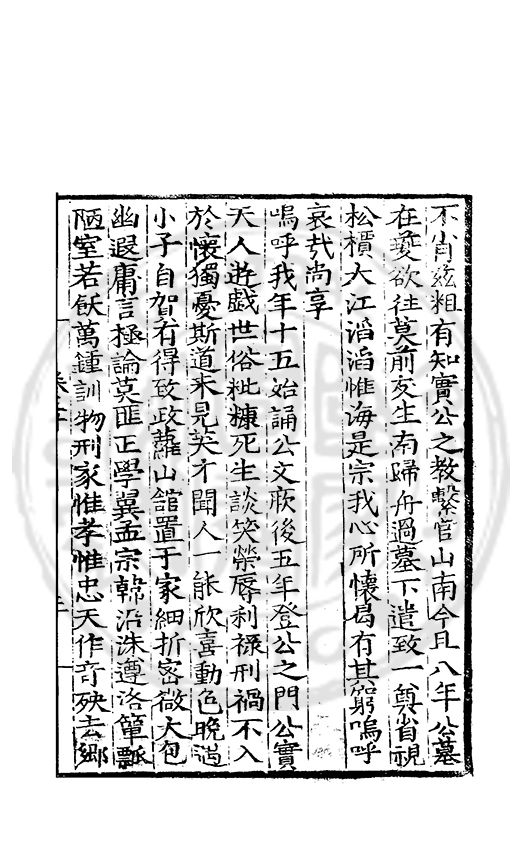 不肖玆粗有知實公之教繫官山南今且八年公墓
在夔欲往莫前友生南歸舟過墓下遣致一奠省視
松檟大江滔滔惟海是宗我心所懷曷有其窮嗚呼
哀哉尚享
嗚呼我年十五始誦公文厥後五年登公之門公實
天人遊戲世俗粃糠死生談笑榮辱利祿刑禍不入
於懷獨憂斯道來見英才聞人一能欣喜動色晚謫
小子自賀有得致政蘿山舘置于家細折密微大包
幽遐庸言極論莫匪正學翼孟宗韓沿洙遵洛簞瓢
陋室若飫萬鍾訓物刑家惟孝惟忠天作奇殃去鄉